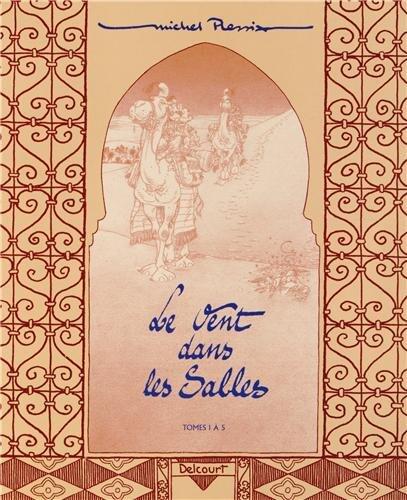 michel Plessix
Le Vent
dans
les Sables
TOMES 1 À 5
Delcourt